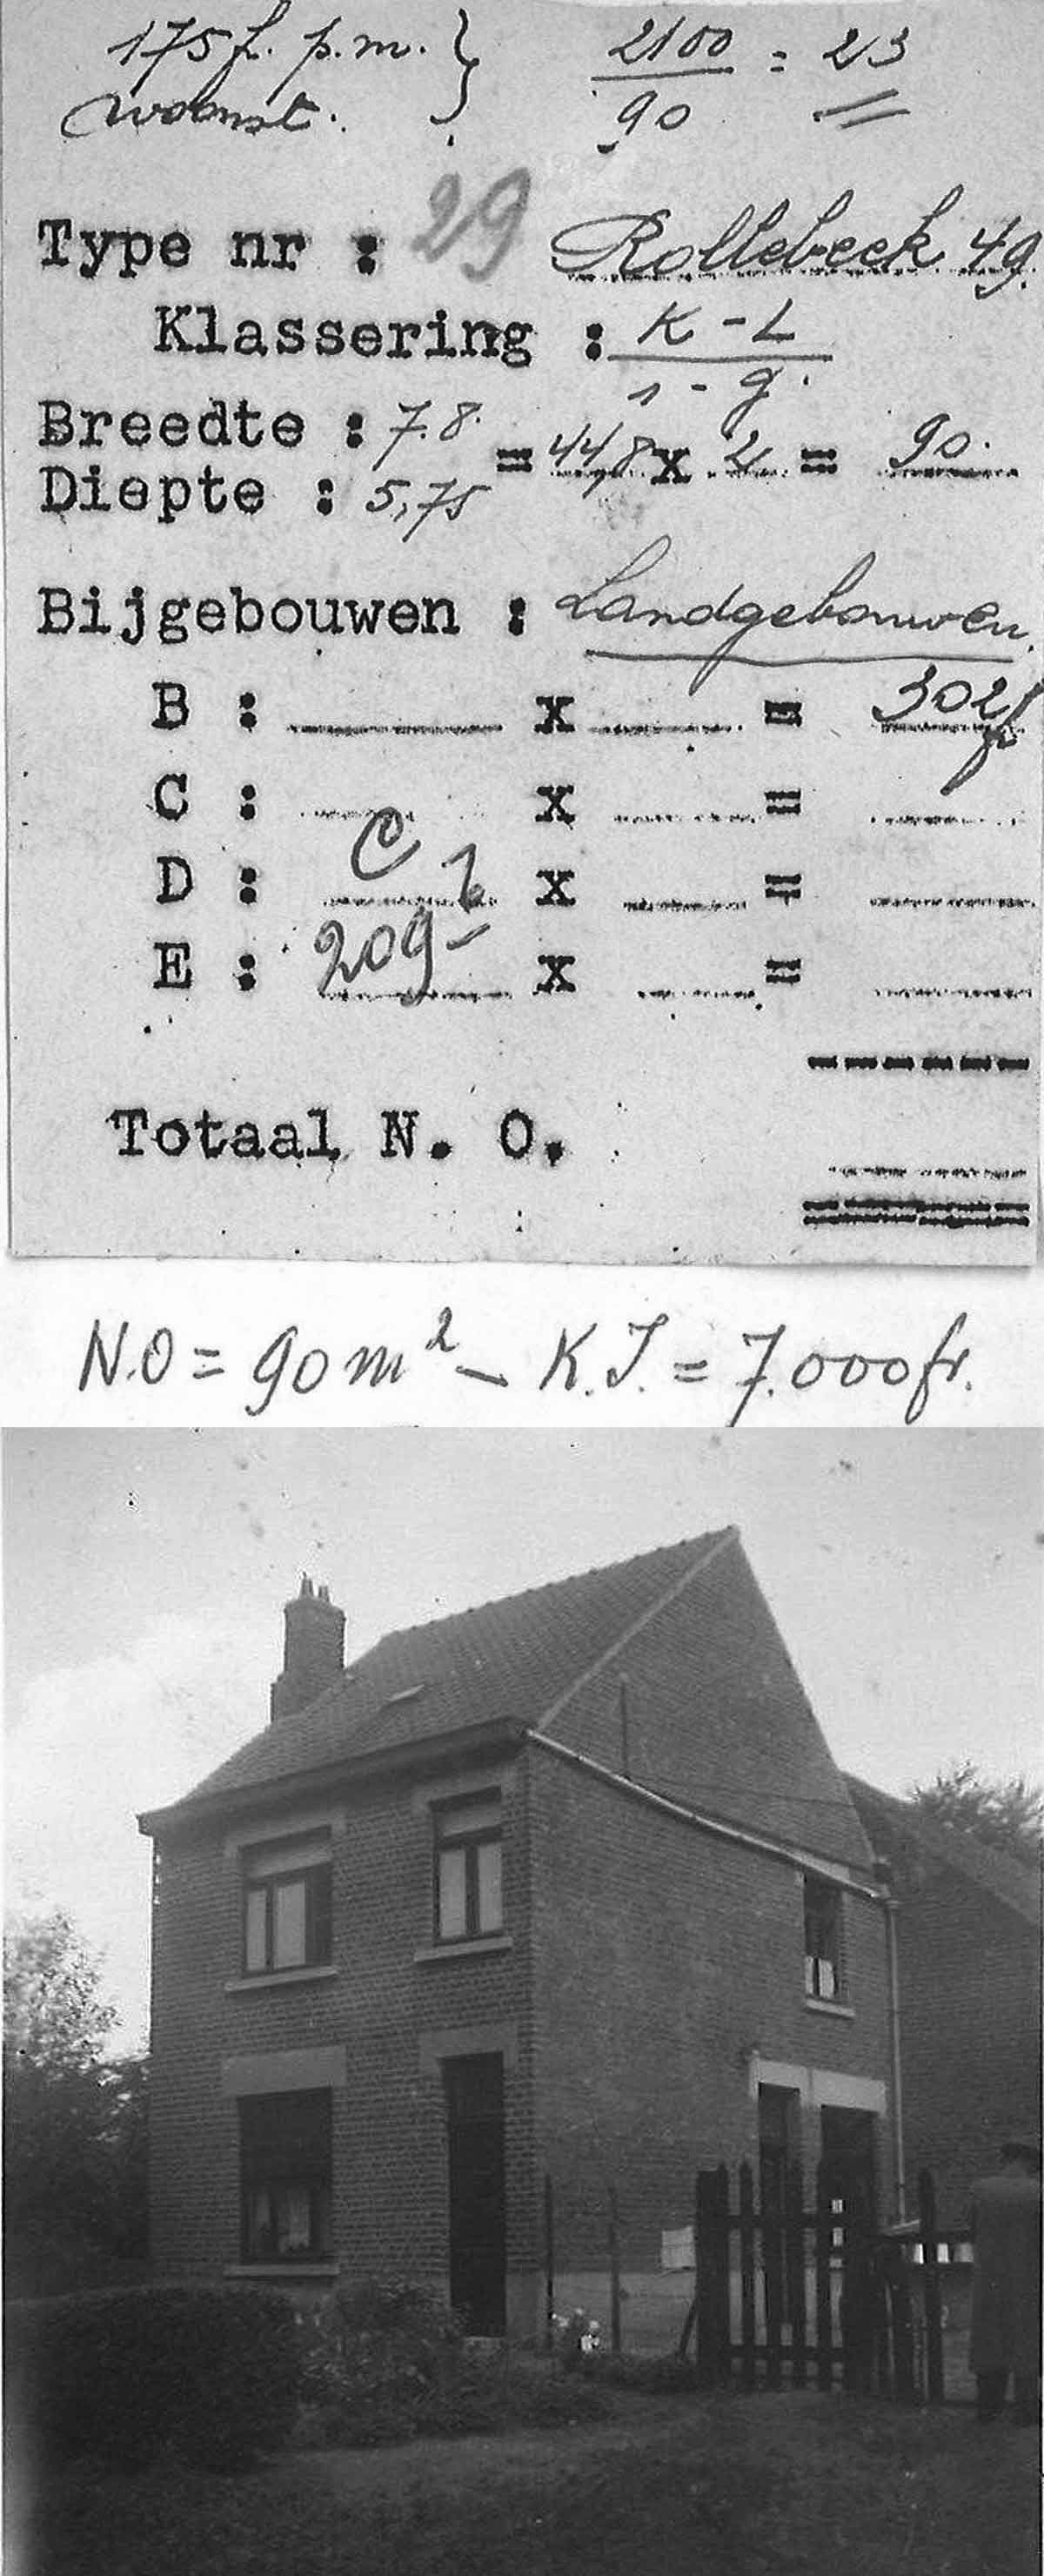 175 f. p.m. } 2100 / 90 = 23
woonst.
Type nr : 29 Rollebeek 49.
Klassering : K - L
1 - g.
Breedte : 7.8.
= 44,8 x 2 = 90.
Diepte : 5,75
Bijgebouwen : Landgebouwen.
B : x = 302 fr
C : x =
C
D : x =
E : 209 x =
Totaal N. O.
N.O = 90 m² - K.I. = 7.000 fr.